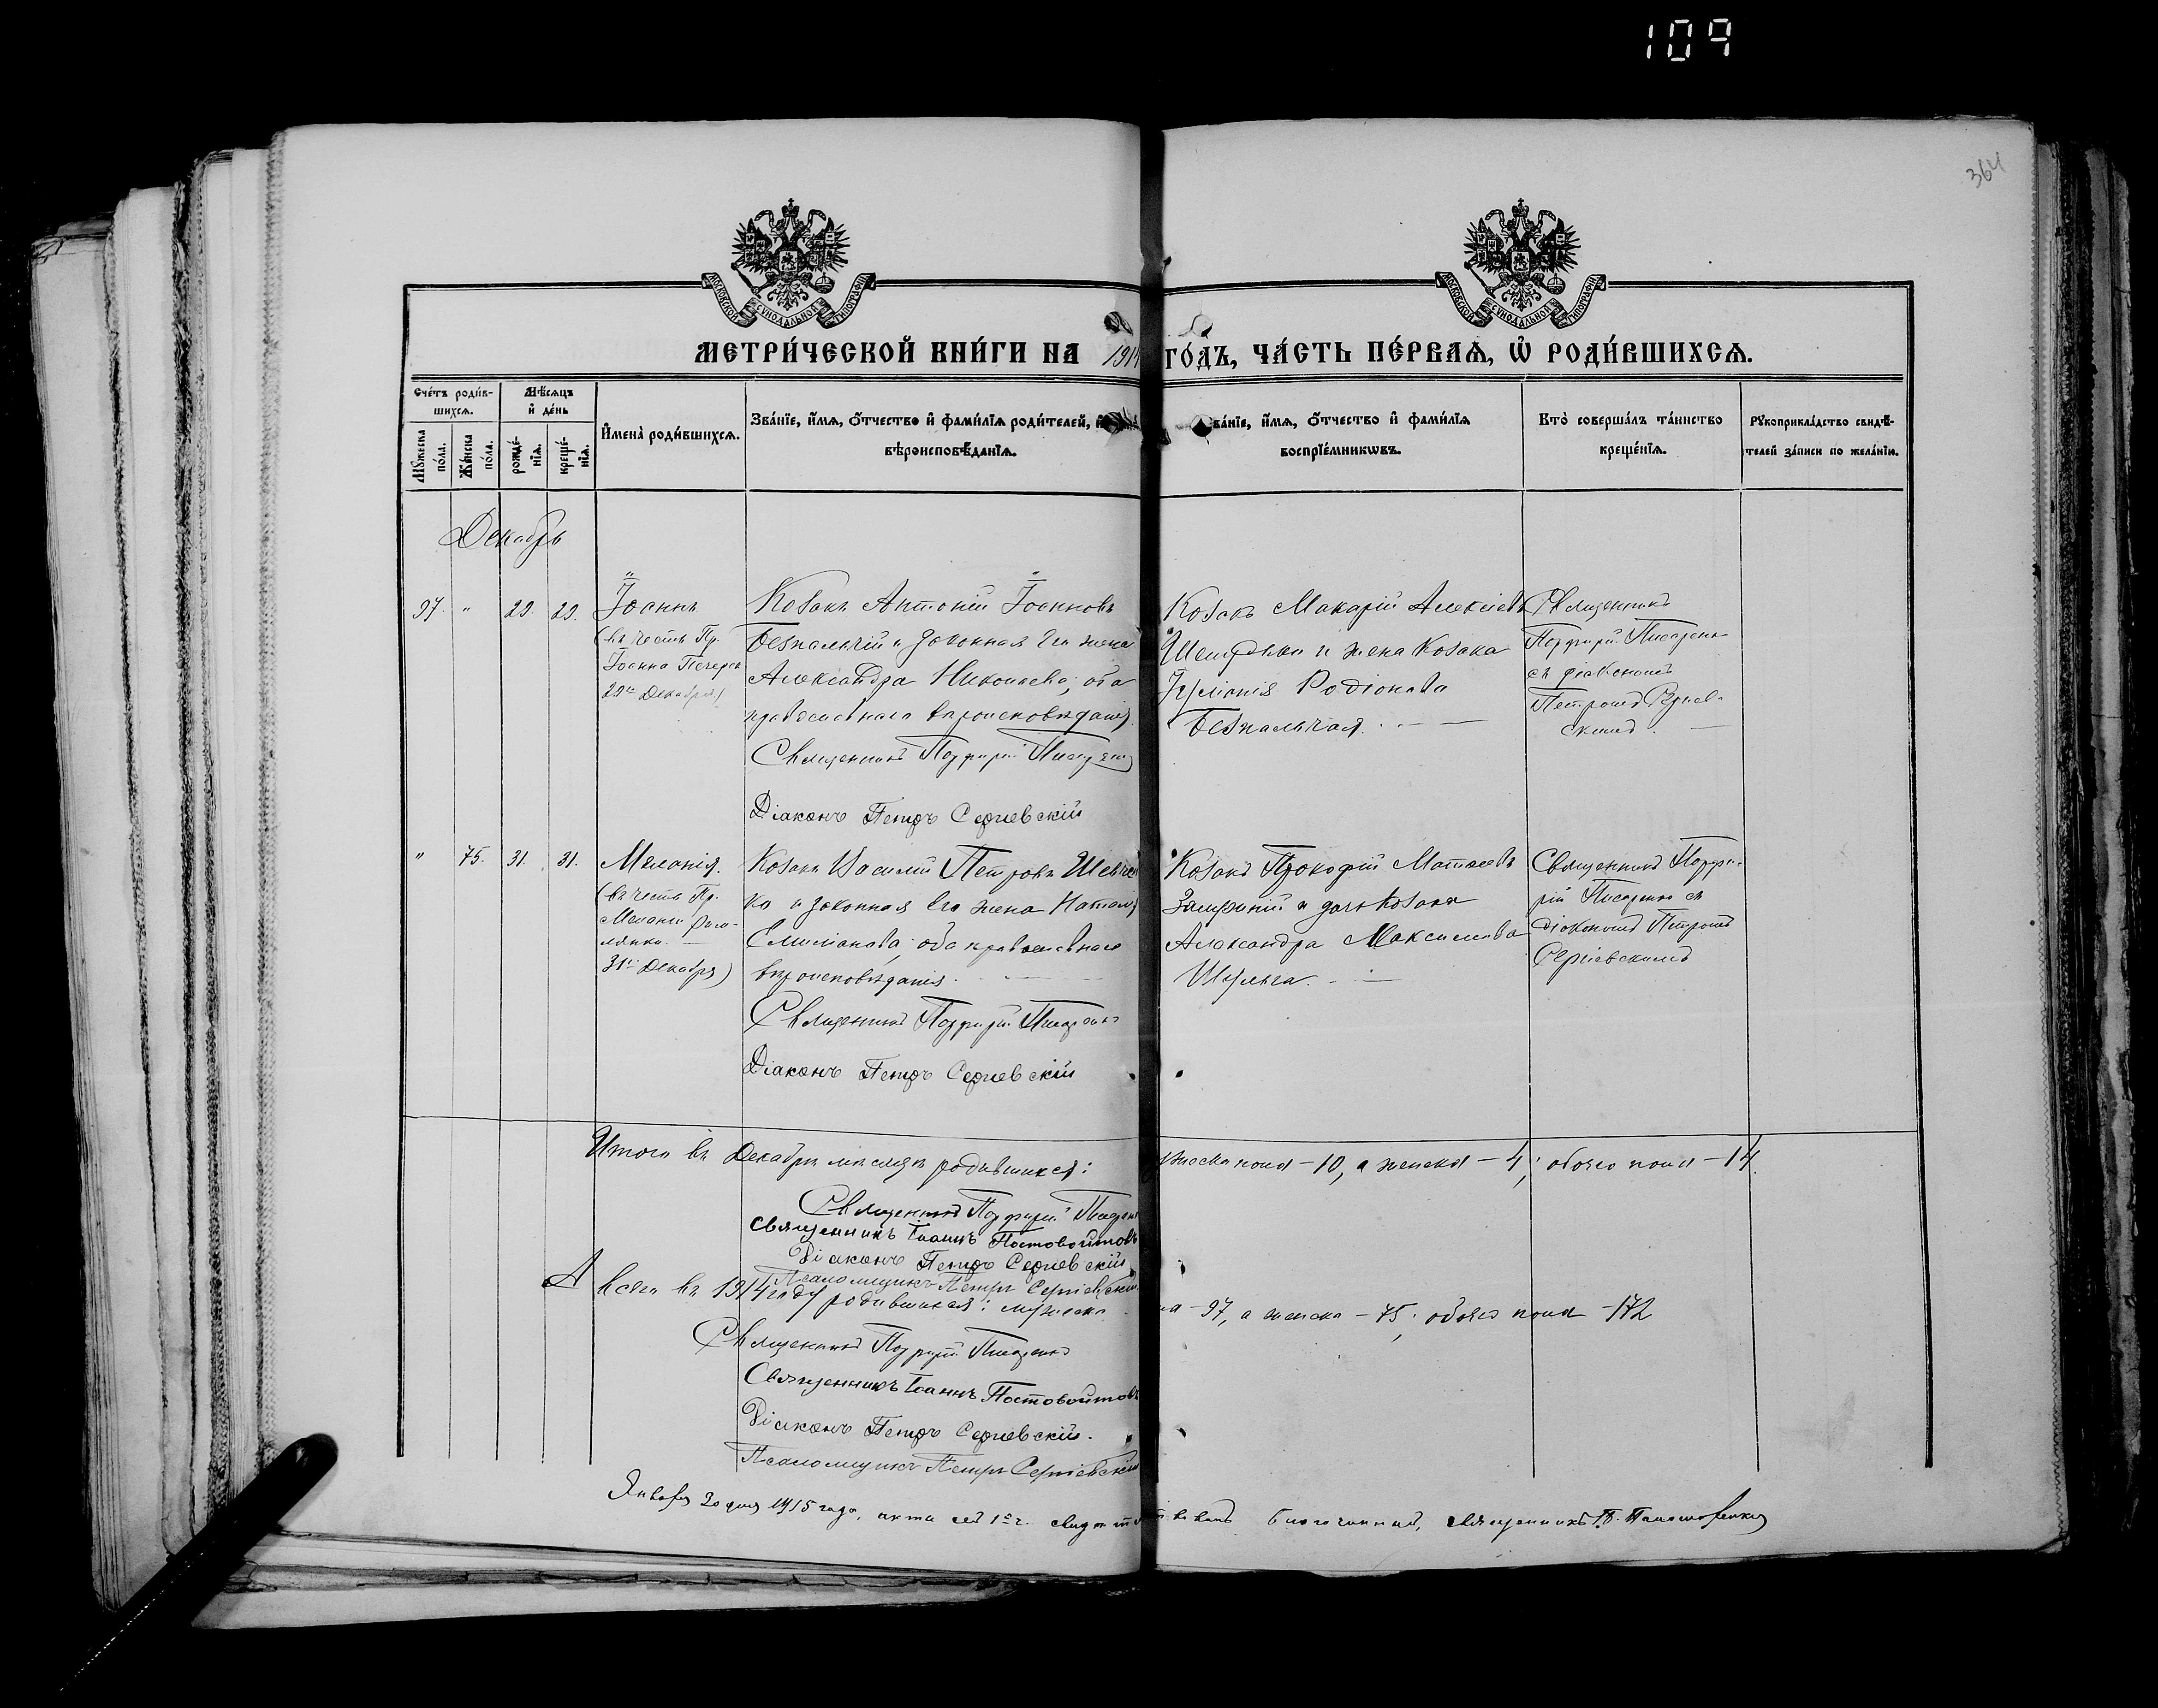 109
364
МОСКОВСКОЙ СѴНОДАЛЬНОЙ ТИПОГРАФІИ
МОСКОВСКОЙ СѴНОДАЛЬНОЙ ТИПОГРАФІИ
МЕТРИ́ЧЕСКОЙ КНИ́ГИ НА 1914 ГО́ДЪ, ЧА́СТЬ ПЕ́РВАЯ, Ѡ҆ РОДИ́ВШИХСЯ.
Сче́тъ роди́в-
шихся.
Мѣ́сяцъ
и҆ де́нь
Мꙋ́жеска
по́ла.
Же́нска
по́ла.
рожде́-
нїѧ.
креще́-
нїѧ.
И҆мена̀ роди́вшихся.
Зва́нїе, и҆́мѧ, ѻ҆́тчество и҆ фами́лїѧ роди́телей, и҆
вѣроисповѣ́данїѧ.
ва́нїе, и҆́мѧ, ѻ҆́тчество и҆ фами́лїѧ
воспрїе́мникѡвъ.
Кто̀ соверша́лъ та́инство
креще́нїѧ.
Рꙋкоприкла́дство свидѣ́-
телей за́писи по жела́нїю.
Декабрь
97. " 29. 29. Іоаннъ
(въ честь Пр.
Іоанна Печерск
29го Декабря)
Козакъ Антоній Іоанновъ
Безпальчій и законная его жена
Александра Николаева, оба
православнаго вѣроисповѣданія.
Священникъ Порфирій Писаренко
Діаконъ Петръ Сергіевскій
Козакъ Макарій Алексѣевъ
и жена козака
Іуліанія Родіонова
Безпальчая.
Священникъ
Порфирій Писарен-
съ діакономъ
Петромъ Сергіев-
скимъ.
" 75. 31. 31. Меланія.
(въ честь Пр.
Меланіи Рим-
лянки.
31го Декабря)
Козакъ Василій Петровъ Шевчен
ко и законная его жена Наталія
Емиліанова, оба православнаго
вѣроисповѣданія.
Священникъ Порфирій Писаренко
Діаконъ Петръ Сергіевскій
Козакъ Прокофій Матѳеевъ
и дочь козака
Александра Максимова
Шульга.
Священникъ Порфи-
рій Писаренко съ
діакономъ Петромъ
Сергіевскимъ
Итого въ Декабрѣ мѣсяцѣ родившихся: мужеска пола – 10, а женска – 4; обоего пола – 14.
Священникъ Порфирій Писаренко
Священникъ Іоаннъ Постовойтовъ
Діаконъ Петръ Сергіевскій
Псаломщикъ Петръ Сергіевскій
А всего въ 1914 году родившихся: мужеска – 97, а женска – 75; обоего пола – 172
Священникъ Порфирій Писаренко
Священникъ Іоаннъ Постовойтовъ
Діаконъ Петръ Сергіевскій.
Псаломщикъ Петръ Сергіевскій
Января 20 дня 1915 года, актъ сей 1й ч. свидѣтельствовалъ благочинный, священникъ